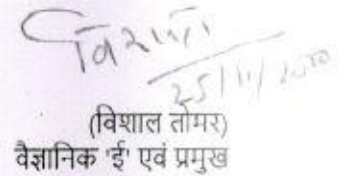 विशाल
25/11/2020
(विशाल तोमर)
वैज्ञानिक 'ई' एवं प्रमुख